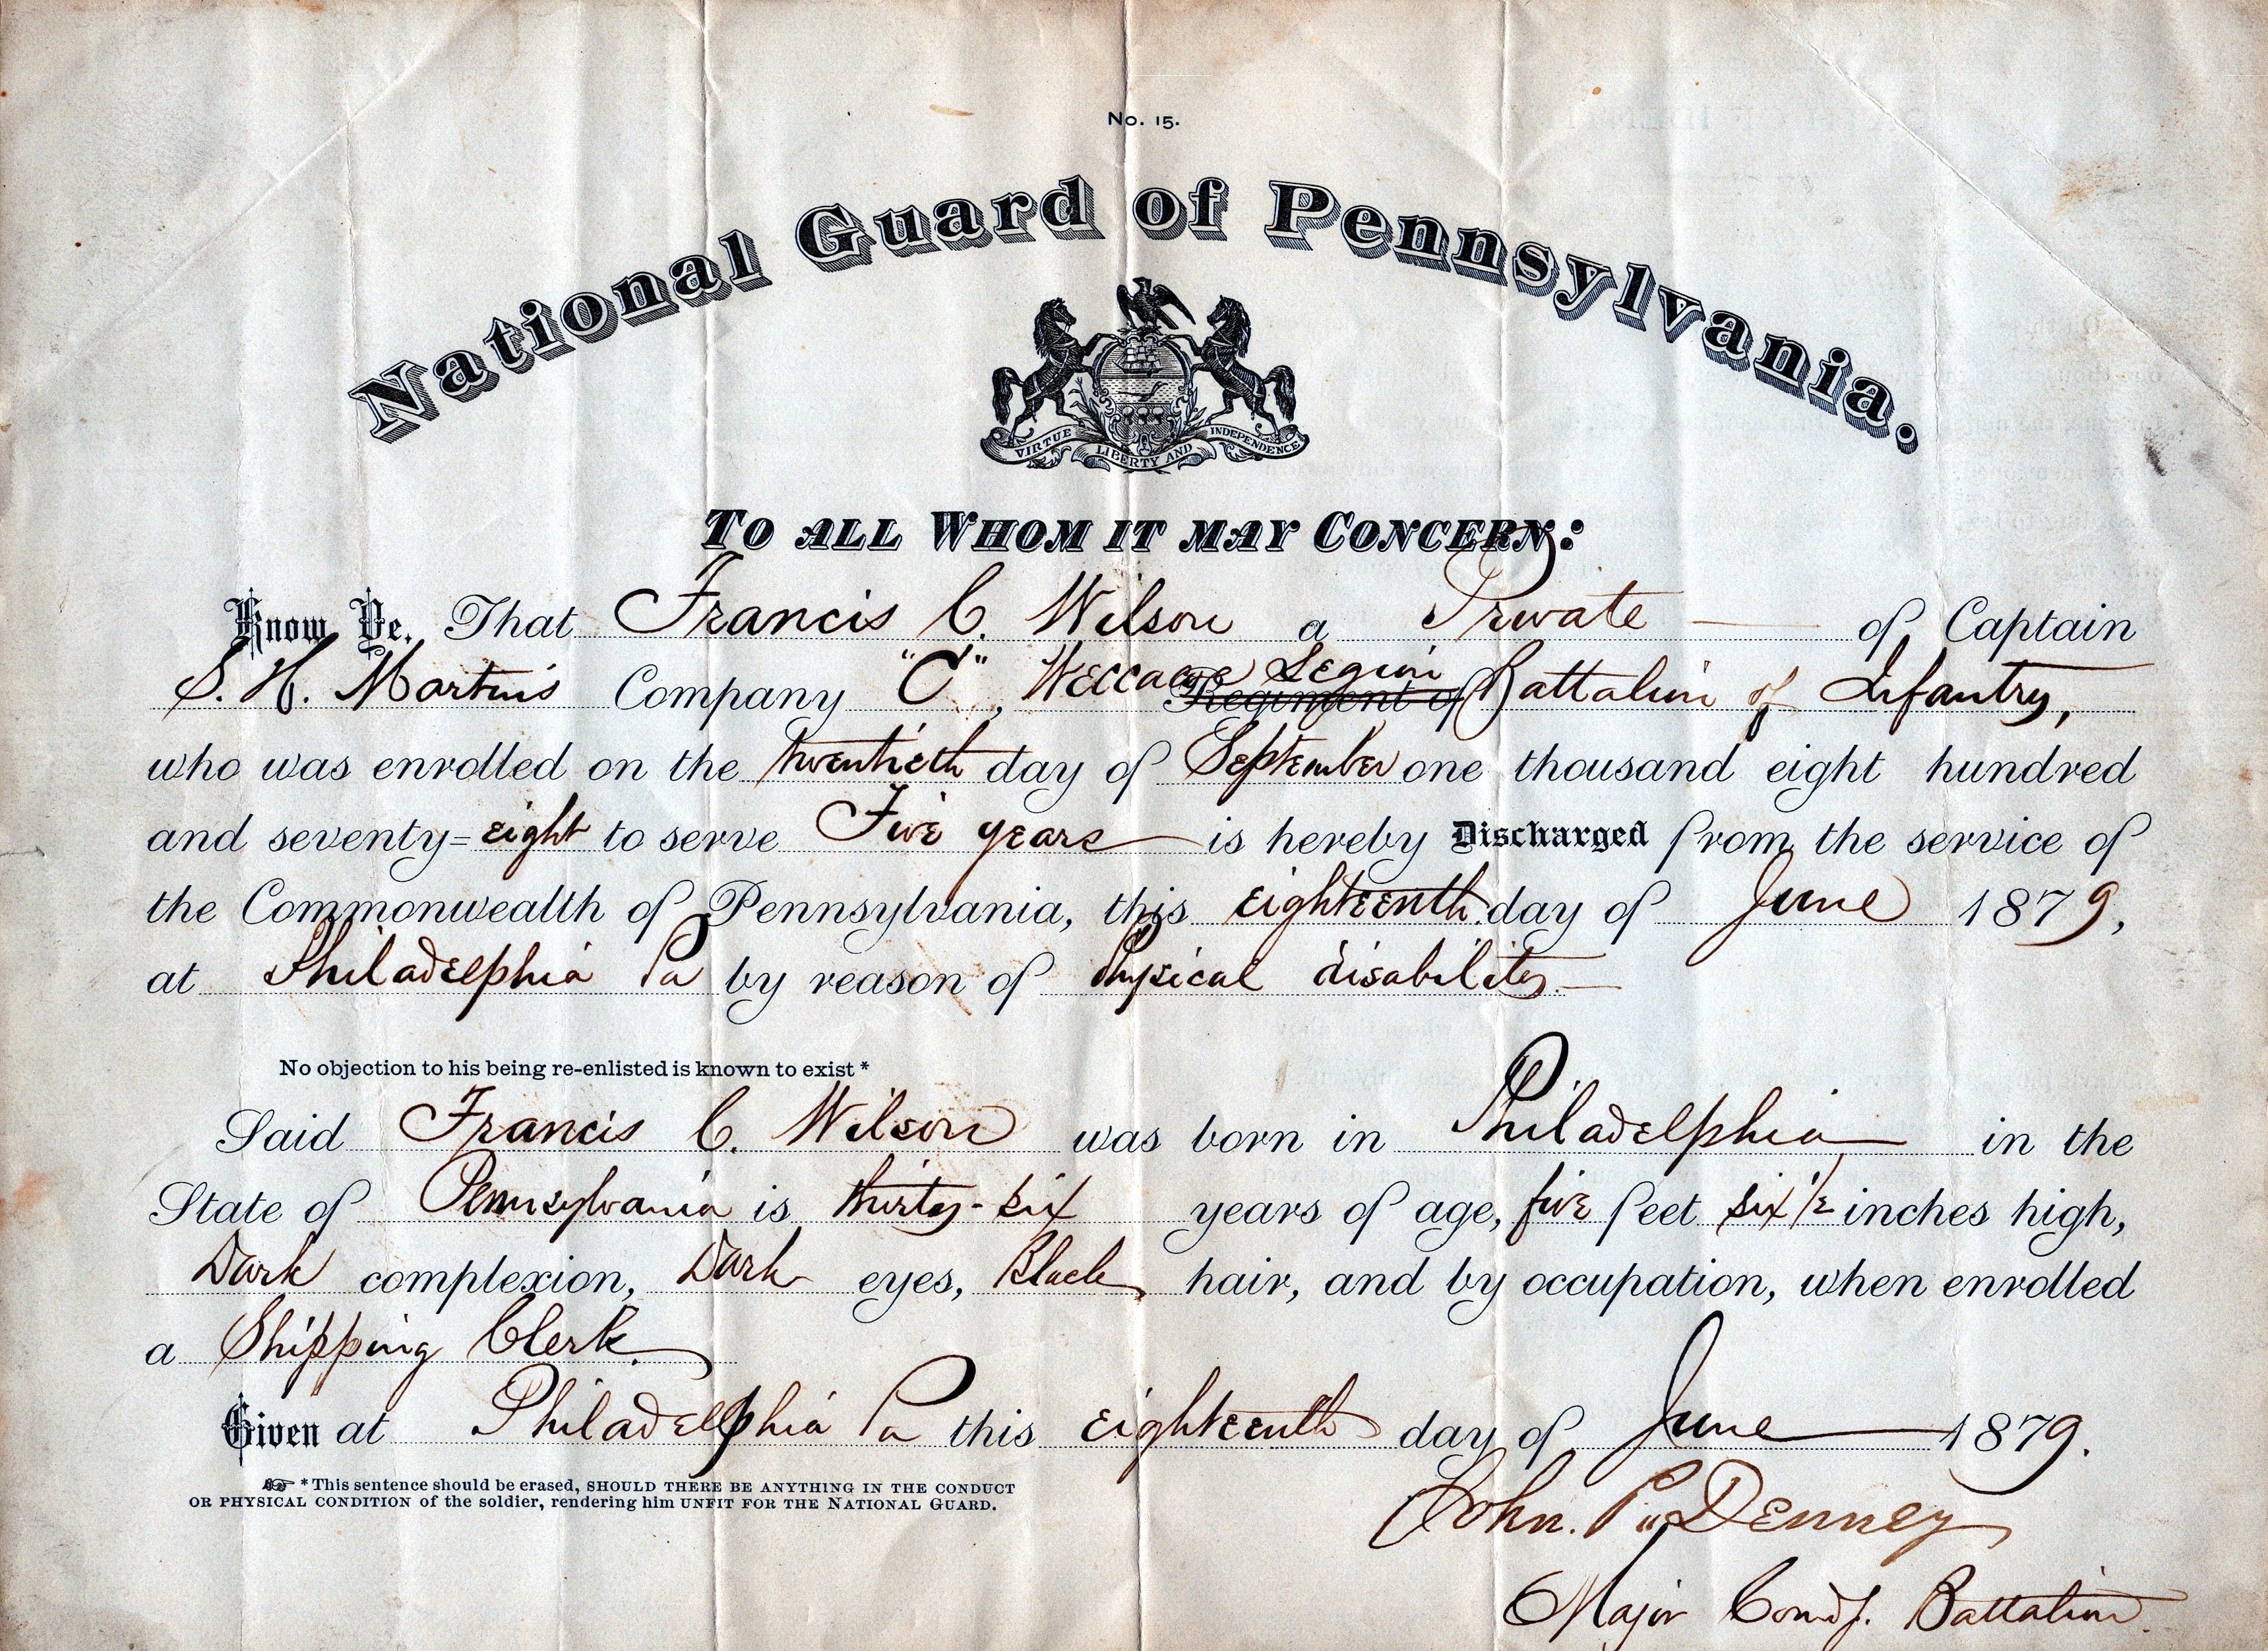 No. 15.
National Guard of Pennsylvania.
VIRTUE LIBERTY AND INDEPENDENCE
TO ALL WHOM IT MAY CONCERN:
Know Ye, That Francis C. Wilson a Private of Captain
S. H. Martins Company "C", Weccacoe Legion Regiment of Battalion of Infantry,
who was enrolled on the twentieth day of September one thousand eight hundred
and seventy=eight to serve Five years is hereby Discharged from the service of
the Commonwealth of Pennsylvania, this eighteenth day of June 1879,
at Philadelphia Pa by reason of Physical disability.
No objection to his being re-enlisted is known to exist *
Said Francis C. Wilson was born in Philadelphia in the
State of Pennsylvania is thirty-six years of age, five feet six 1/2 inches high,
Dark complexion, Dark eyes, Black hair, and by occupation, when enrolled
a Shipping Clerk.
Given at Philadelphia Pa this eighteenth day of June 1879.
* This sentence should be erased, SHOULD THERE BE ANYTHING IN THE CONDUCT
OR PHYSICAL CONDITION of the soldier, rendering him UNFIT FOR THE NATIONAL GUARD.
John. P. Denney
Major Comdg. Battalion